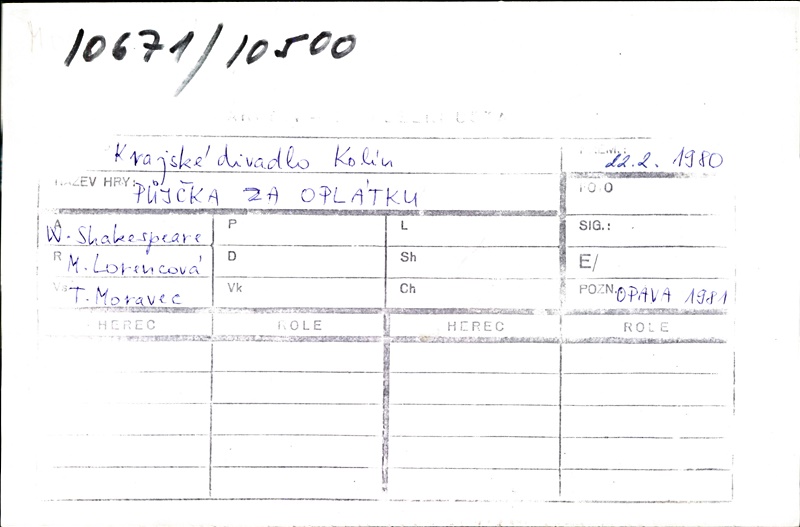 10671/10500
Krajské divadlo Kolín
22.2. 1980
NÁZEV HRY: PŮJČKA ZA OPLÁTKU
FOTO
A W. Shakespeare P L SIG.:
R M. Lorencová D Sh E/
T. Moravec Vk Ch POZN. OPAVA 1981
HEREC ROLE HEREC ROLE